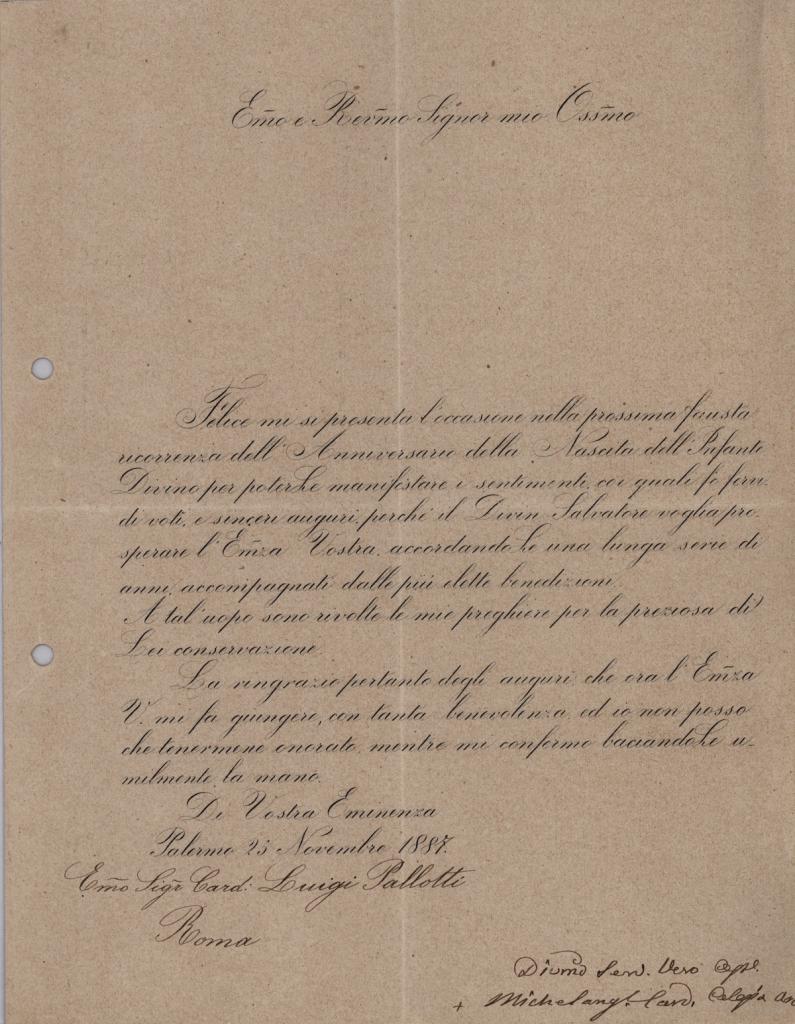 Em̃o e Reṽmo Signor mio Oss̃mo
Felice mi si presenta l'occasione nella prossima fausta
ricorrenza dell'Anniversario della Nascita dell'Infante
Divino per poterLe manifestare i sentimenti, coi quali fo fervi-
di voti, e sinceri auguri, perchè il Divin Salvatore voglia pro-
sperare l'Em̃za Vostra, accordandoLe una lunga serie di
anni, accompagnati dalle più elette benedizioni.
A tal'uopo sono rivolte le mie preghiere per la preziosa di
Lei conservazione.
La ringrazio pertanto degli auguri, che ora l'Em̃za
V. mi fa giungere, con tanta benevolenza, ed io non posso
che tenermene onorato, mentre mi confermo baciandoLe u-
milmente la mano.
Di Vostra Eminenza
Palermo 25 Novembre 1887.
Em̃o Sigr Card: Luigi Pallotti
Roma
Serv. Vero
+ Michelang. Card. Celesia